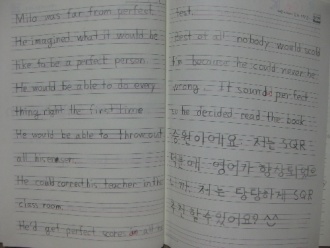 Milo was far from perfect.
He imagined what it would be
like to be a perfect person.
He would be able to do every
thing right the first time
He would be able to throw out
all his
He could correct his teacher in the
class room
He'd get perfect score on all
test.
Best at all nobody would scold
because he could never be
wrong. It sounds perfect
so he decided read the book
승원이에요. 저는 SQR
덕분에 영어가 향상되었으
니까 저는 당당하게 SQR
추천할 수 있어요? ^^